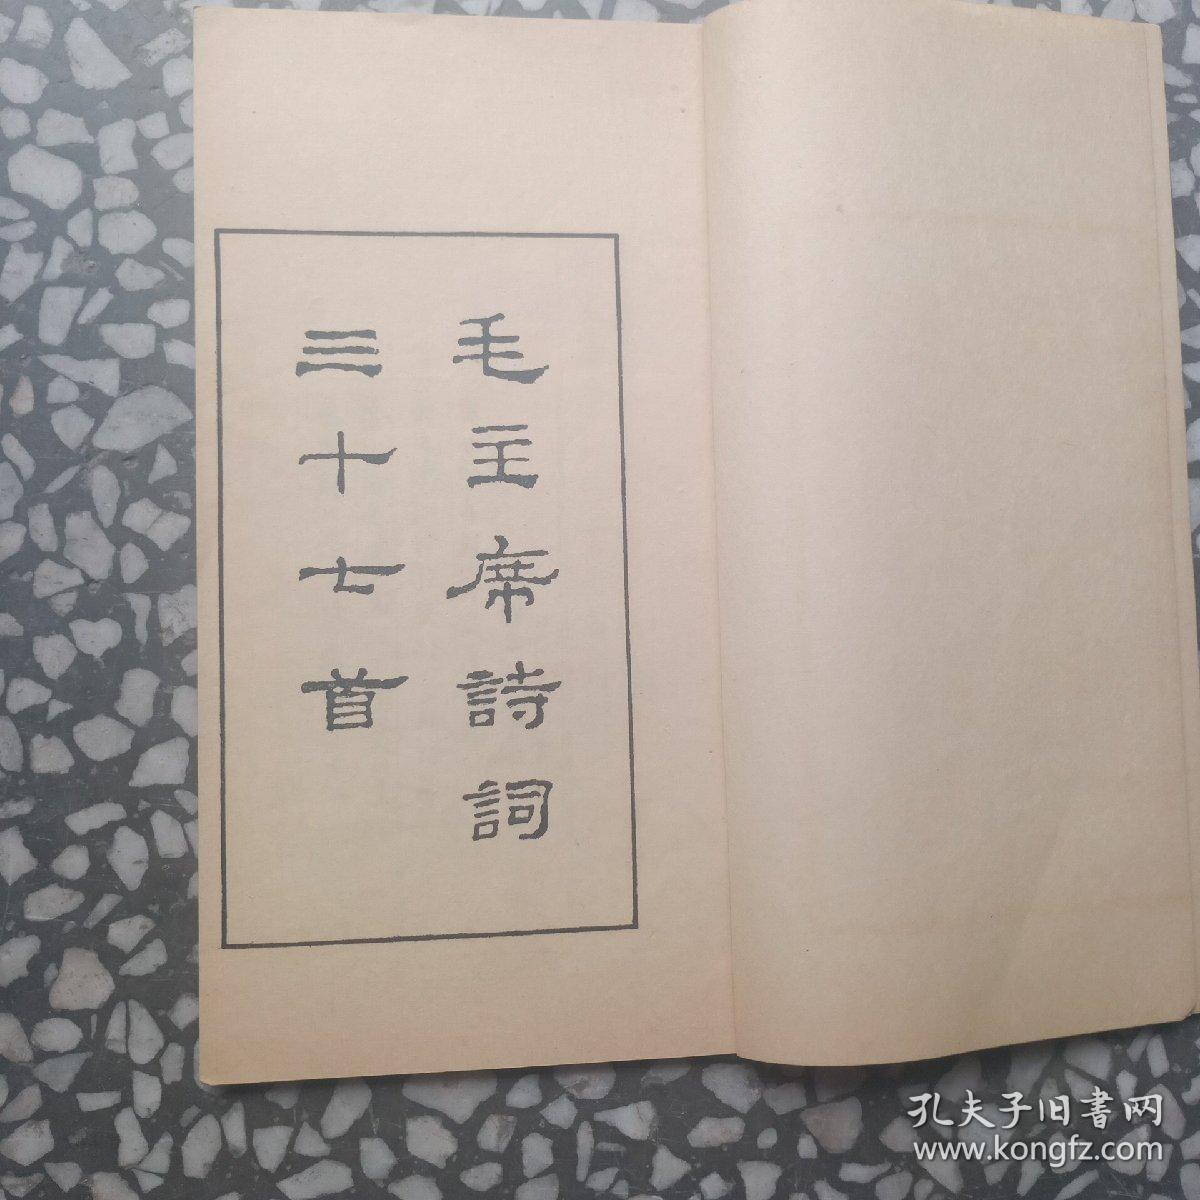 毛主席詩詞
三十七首
孔夫子旧書网
www.kongfz.com